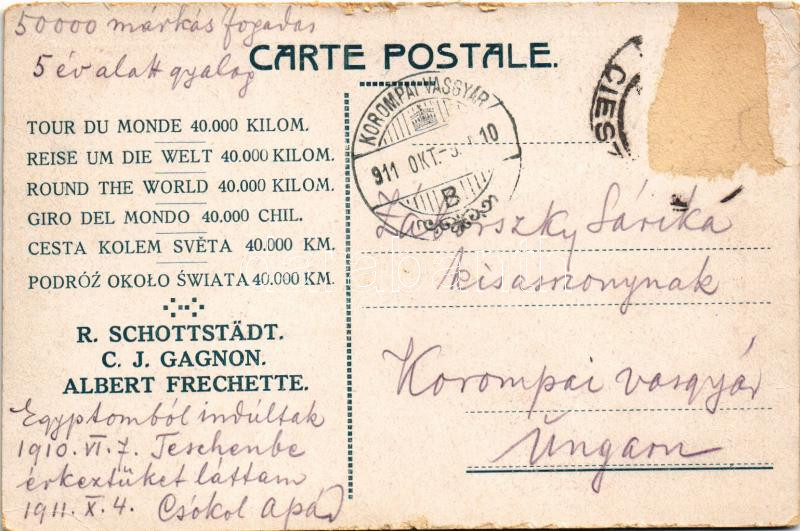 50000 márkás fogadás
5 év alatt gyalog
CARTE POSTALE.
KOROMPAI VASGYÁR
911 OKT. 10
B
CIESZ
TOUR DU MONDE 40.000 KILOM.
REISE UM DIE WELT 40.000 KILOM.
ROUND THE WORLD 40.000 KILOM.
GIRO DEL MONDO 40.000 CHIL.
CESTA KOLEM SVĚTA 40.000 KM.
PODRÓŻ OKOŁO ŚWIATA 40.000 KM.
R. SCHOTTSTÄDT.
C. J. GAGNON.
ALBERT FRECHETTE.
Egyptomból indúltak
1910. VI. 7. Teschenbe
érkeztüket láttam
1911. X. 4. Csókol apád
Sárika
kisasszonynak
Korompai vasgyár
Ungarn